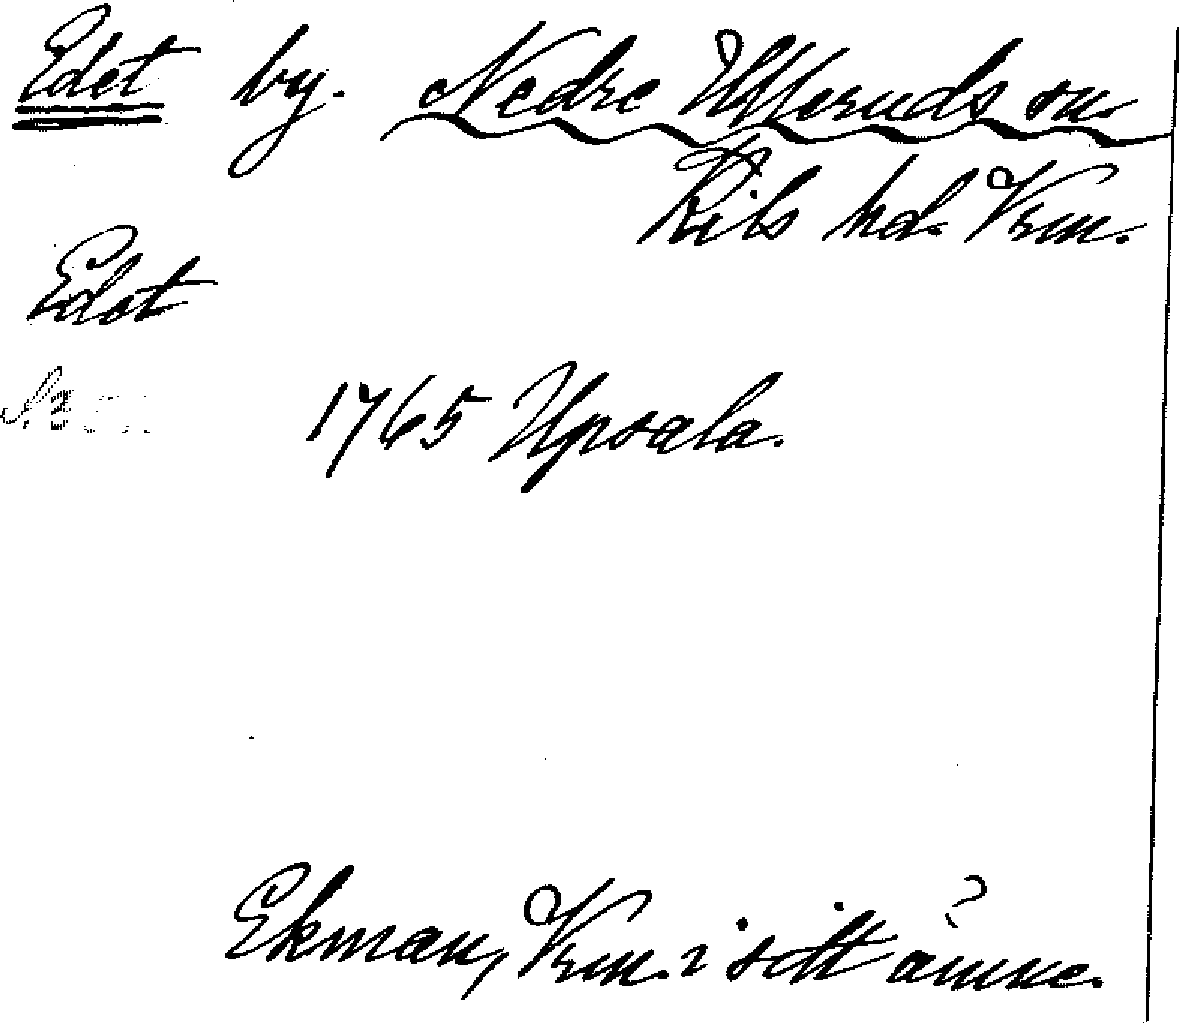 Edet by. Nedre Ulleruds sn.
Kils hd. Vrm.
Edet
1765 Upsala.
Ekman, Vrm. i sitt ämne.